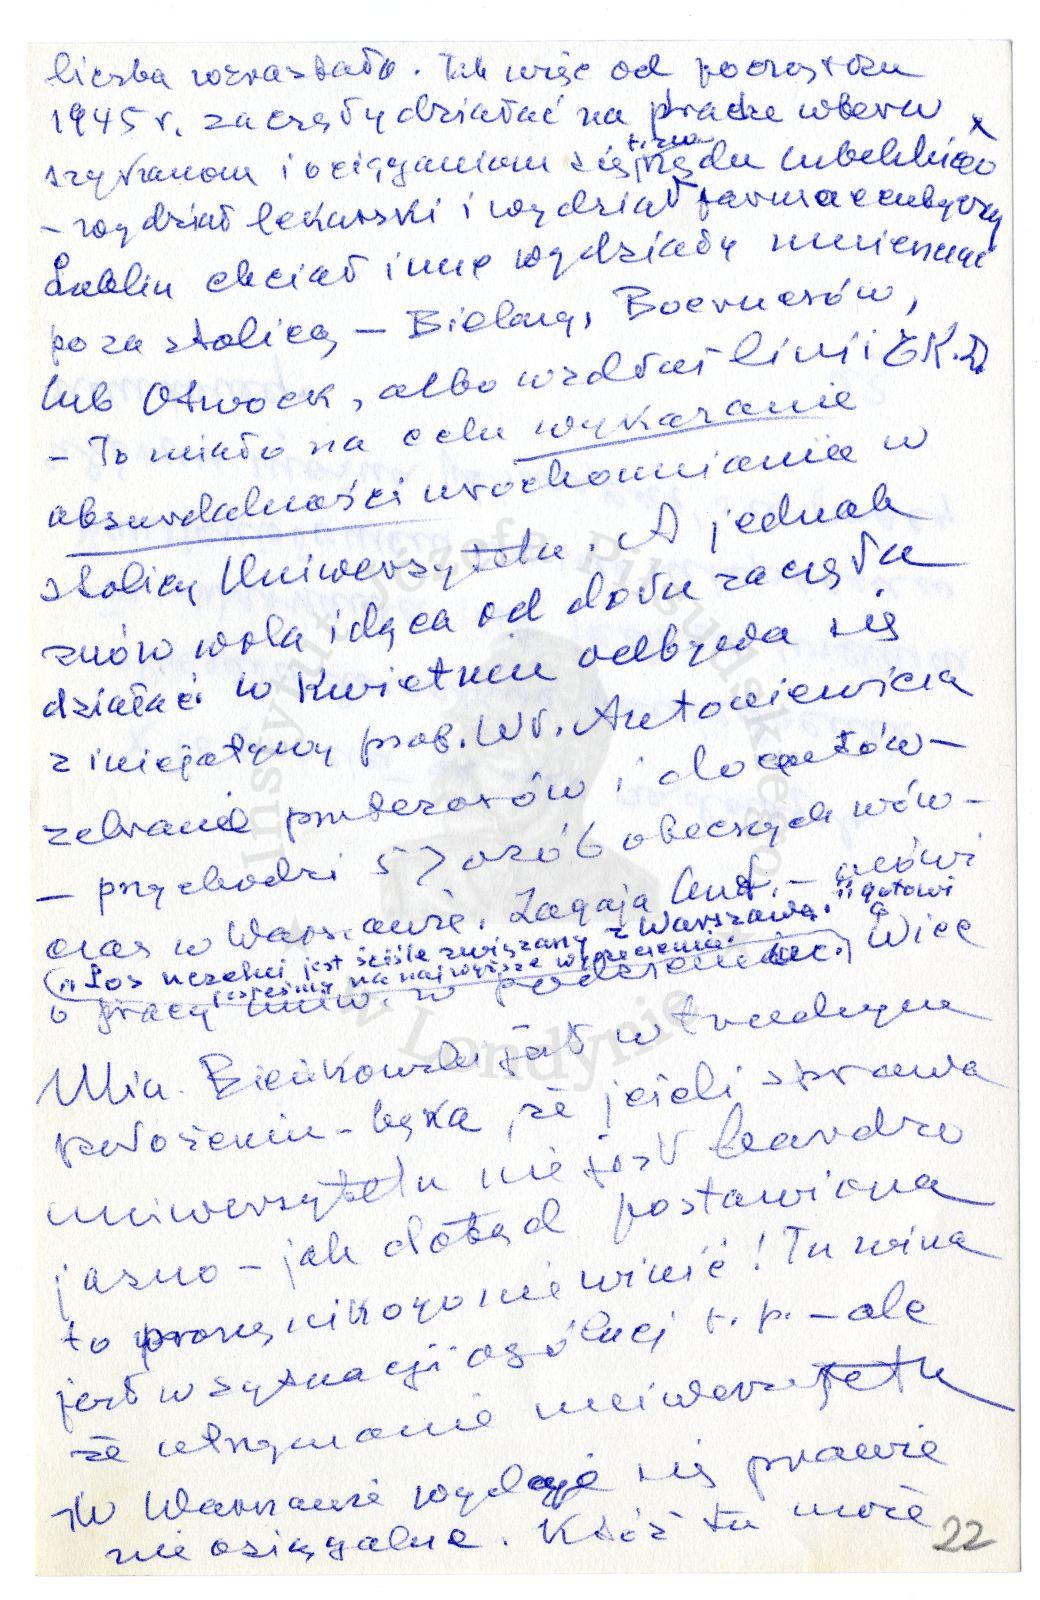 liczba wzrastała. Tak więc od początku
1945 r. zaczęły działać na Pradze wbrew
szykanom i ociąganiom się t. zw. rządu lubelskiego
– wydział lekarski i wydział farmaceutyczny
Lublin chciał inne wydziały umieszczać
poza stolicą – Bielany, Boernerów,
lub Otwock, albo wzdłuż linii E.K.D.
– To miało na celu wykazanie
absurdalności uruchomiania w
stolicy Uniwersytetu. A jednak
znów wola idąca od dołu zaczęła
działać i w Kwietniu odbywa się
z inicjatywy prof. Wł. Antoniewicza
zebranie profesorów i docentów –
– przychodzi 57 osób obecnych wów-
czas w Warszawie. Zagaja Ant. – mówi
(„Los uczelni jest ściśle związany z Warszawą." „gotowi
jesteśmy na najwyższe wyrzeczenia.
o pracy uniw. w podziemiu.) Wice
Min. Bieńkowski jest w trudnym
położeniu – bąka, że jeżeli sprawa
uniwersytetu nie jest bardzo
jasno – jak dotąd postawiona
to proszę nikogo nie winić! Tu wina
jest w sytuacji ogólnej t. p. – ale
że utrzymanie uniwersytetu
w Warszawie wydaje się prawie
nieosiągalne. Któż tu może
22
Instytut Józefa Piłsudskiego
w Londynie